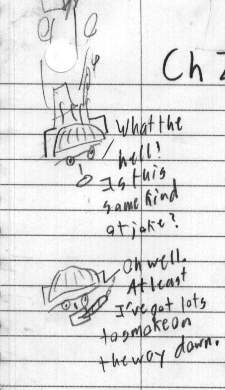 Ch 2
What the
hell!
Is this
some kind
of joke?
Oh well.
At least
I've got lots
to smoke on
the way down.